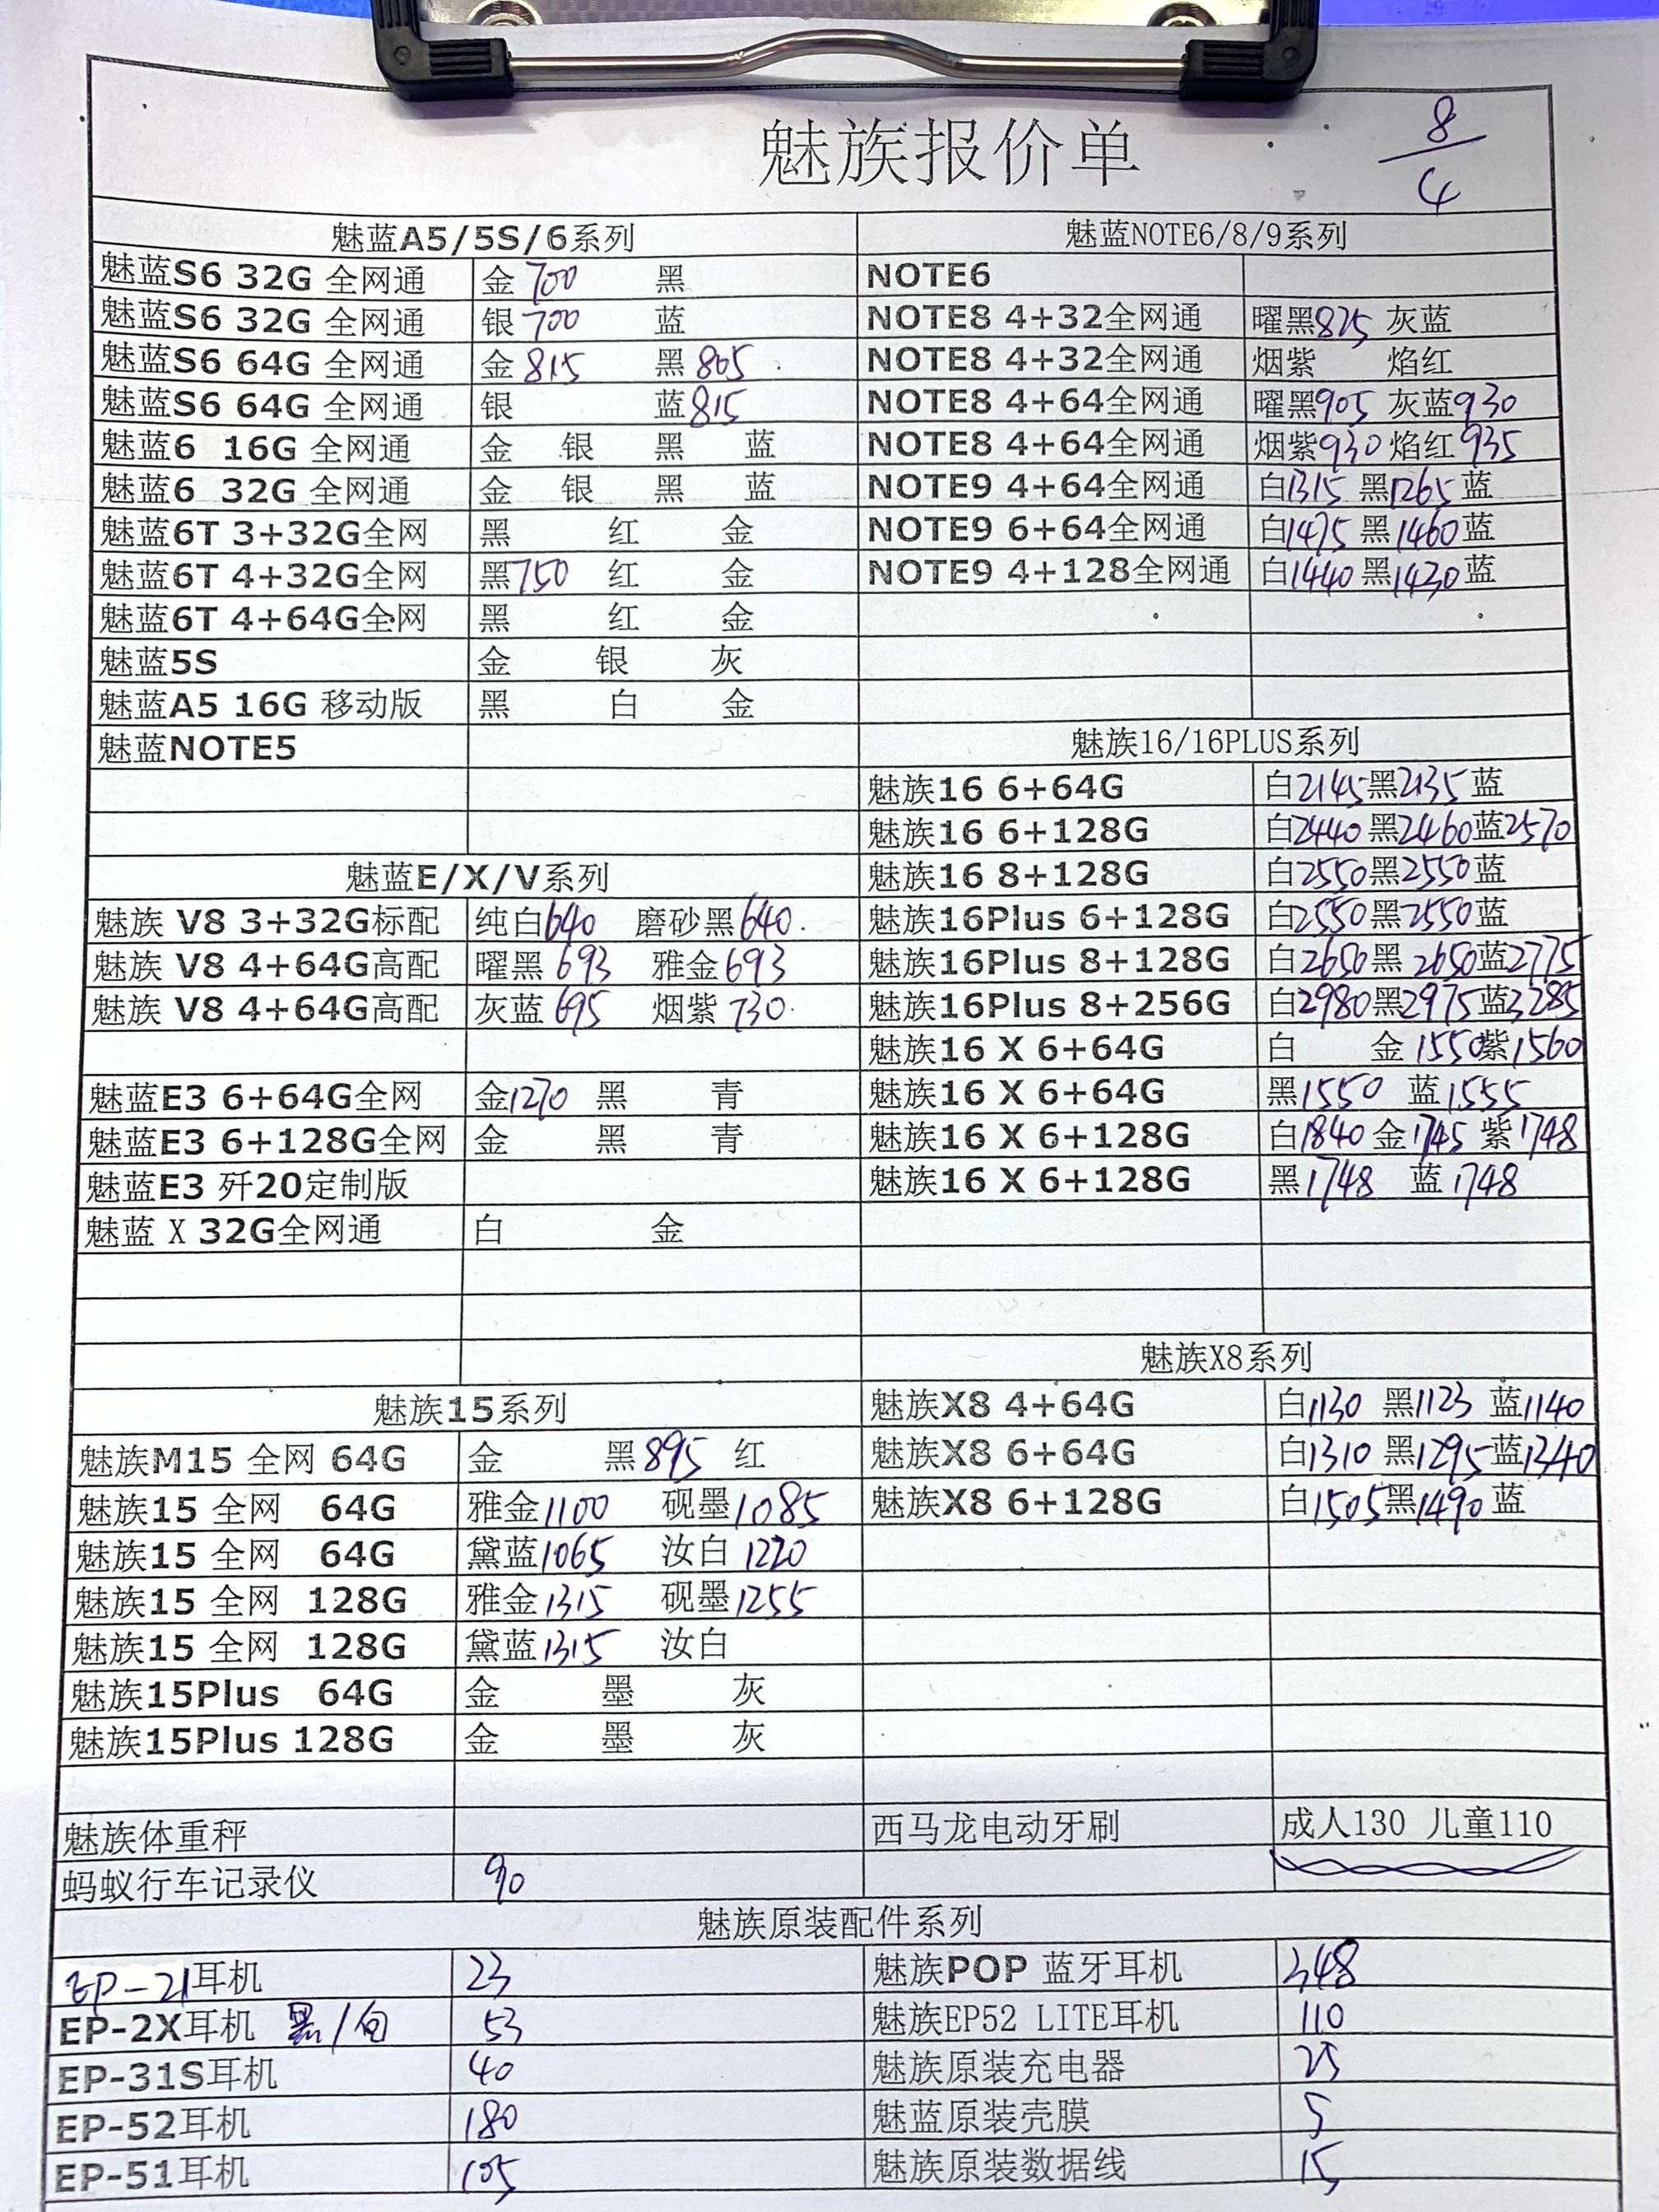 魅族报价单
8/4
魅蓝A5/5S/6系列
魅蓝S6 32G 全网通 金700 黑
魅蓝S6 32G 全网通 银700 蓝
魅蓝S6 64G 全网通 金815 黑805
魅蓝S6 64G 全网通 银 蓝815
魅蓝6 16G 全网通 金 银 黑 蓝
魅蓝6 32G 全网通 金 银 黑 蓝
魅蓝6T 3+32G全网 黑 红 金
魅蓝6T 4+32G全网 黑750 红 金
魅蓝6T 4+64G全网 黑 红 金
魅蓝5S 金 银 灰
魅蓝A5 16G 移动版 黑 白 金
魅蓝NOTE5
魅蓝E/X/V系列
魅族 V8 3+32G标配 纯白640 磨砂黑640
魅族 V8 4+64G高配 曜黑693 雅金693
魅族 V8 4+64G高配 灰蓝695 烟紫730
魅蓝E3 6+64G全网 金1270 黑 青
魅蓝E3 6+128G全网 金 黑 青
魅蓝E3 歼20定制版
魅蓝 X 32G全网通 白 金
魅族15系列
魅族M15 全网 64G 金 黑895 红
魅族15 全网 64G 雅金1100 砚墨1085
魅族15 全网 64G 黛蓝1065 汝白1220
魅族15 全网 128G 雅金1315 砚墨1255
魅族15 全网 128G 黛蓝1315 汝白
魅族15Plus 64G 金 墨 灰
魅族15Plus 128G 金 墨 灰
魅族体重秤
蚂蚁行车记录仪 90
魅蓝NOTE6/8/9系列
NOTE6
NOTE8 4+32全网通 曜黑825 灰蓝
NOTE8 4+32全网通 烟紫 焰红
NOTE8 4+64全网通 曜黑905 灰蓝930
NOTE8 4+64全网通 烟紫930 焰红935
NOTE9 4+64全网通 白1315 黑1265 蓝
NOTE9 6+64全网通 白1475 黑1460 蓝
NOTE9 4+128全网通 白1440 黑1430 蓝
魅族16/16PLUS系列
魅族16 6+64G 白2145 黑2135 蓝
魅族16 6+128G 白2440 黑2460 蓝2570
魅族16 8+128G 白2550 黑2550 蓝
魅族16Plus 6+128G 白2550 黑2550 蓝
魅族16Plus 8+128G 白2650 黑2650 蓝2775
魅族16Plus 8+256G 白2980 黑2975 蓝3285
魅族16 X 6+64G 白 金1550 紫1560
魅族16 X 6+64G 黑1550 蓝1555
魅族16 X 6+128G 白1840 金1745 紫1748
魅族16 X 6+128G 黑1748 蓝1748
魅族X8系列
魅族X8 4+64G 白1130 黑1123 蓝1140
魅族X8 6+64G 白1310 黑1295 蓝1340
魅族X8 6+128G 白1505 黑1490 蓝
西马龙电动牙刷 成人130 儿童110
魅族原装配件系列
EP-21耳机 23
EP-2X耳机 黑/白 53
EP-31S耳机 40
EP-52耳机 180
EP-51耳机 105
魅族POP 蓝牙耳机 348
魅族EP52 LITE耳机 110
魅族原装充电器 25
魅蓝原装壳膜 5
魅族原装数据线 15